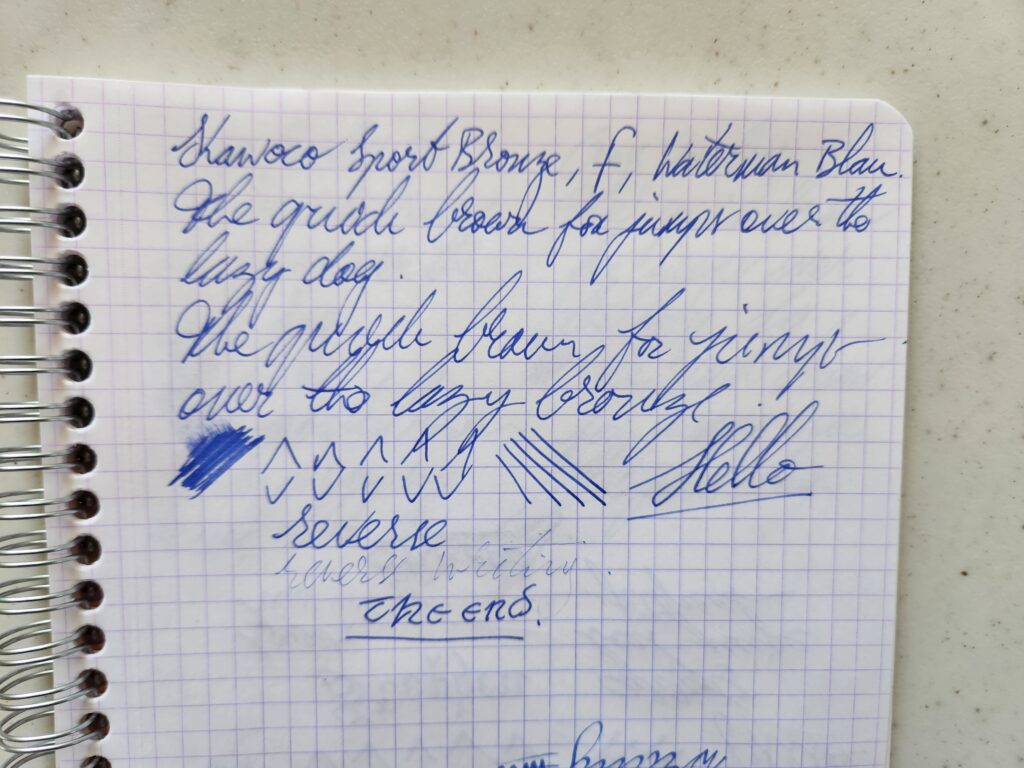 Kaweco Sport Bronze, f, Waterman Blau.
The quick brown fox jumps over the
lazy dog.
The quick brown fox jumps
over the lazy bronze!
Hello
reverse
revers writing.
THE END.